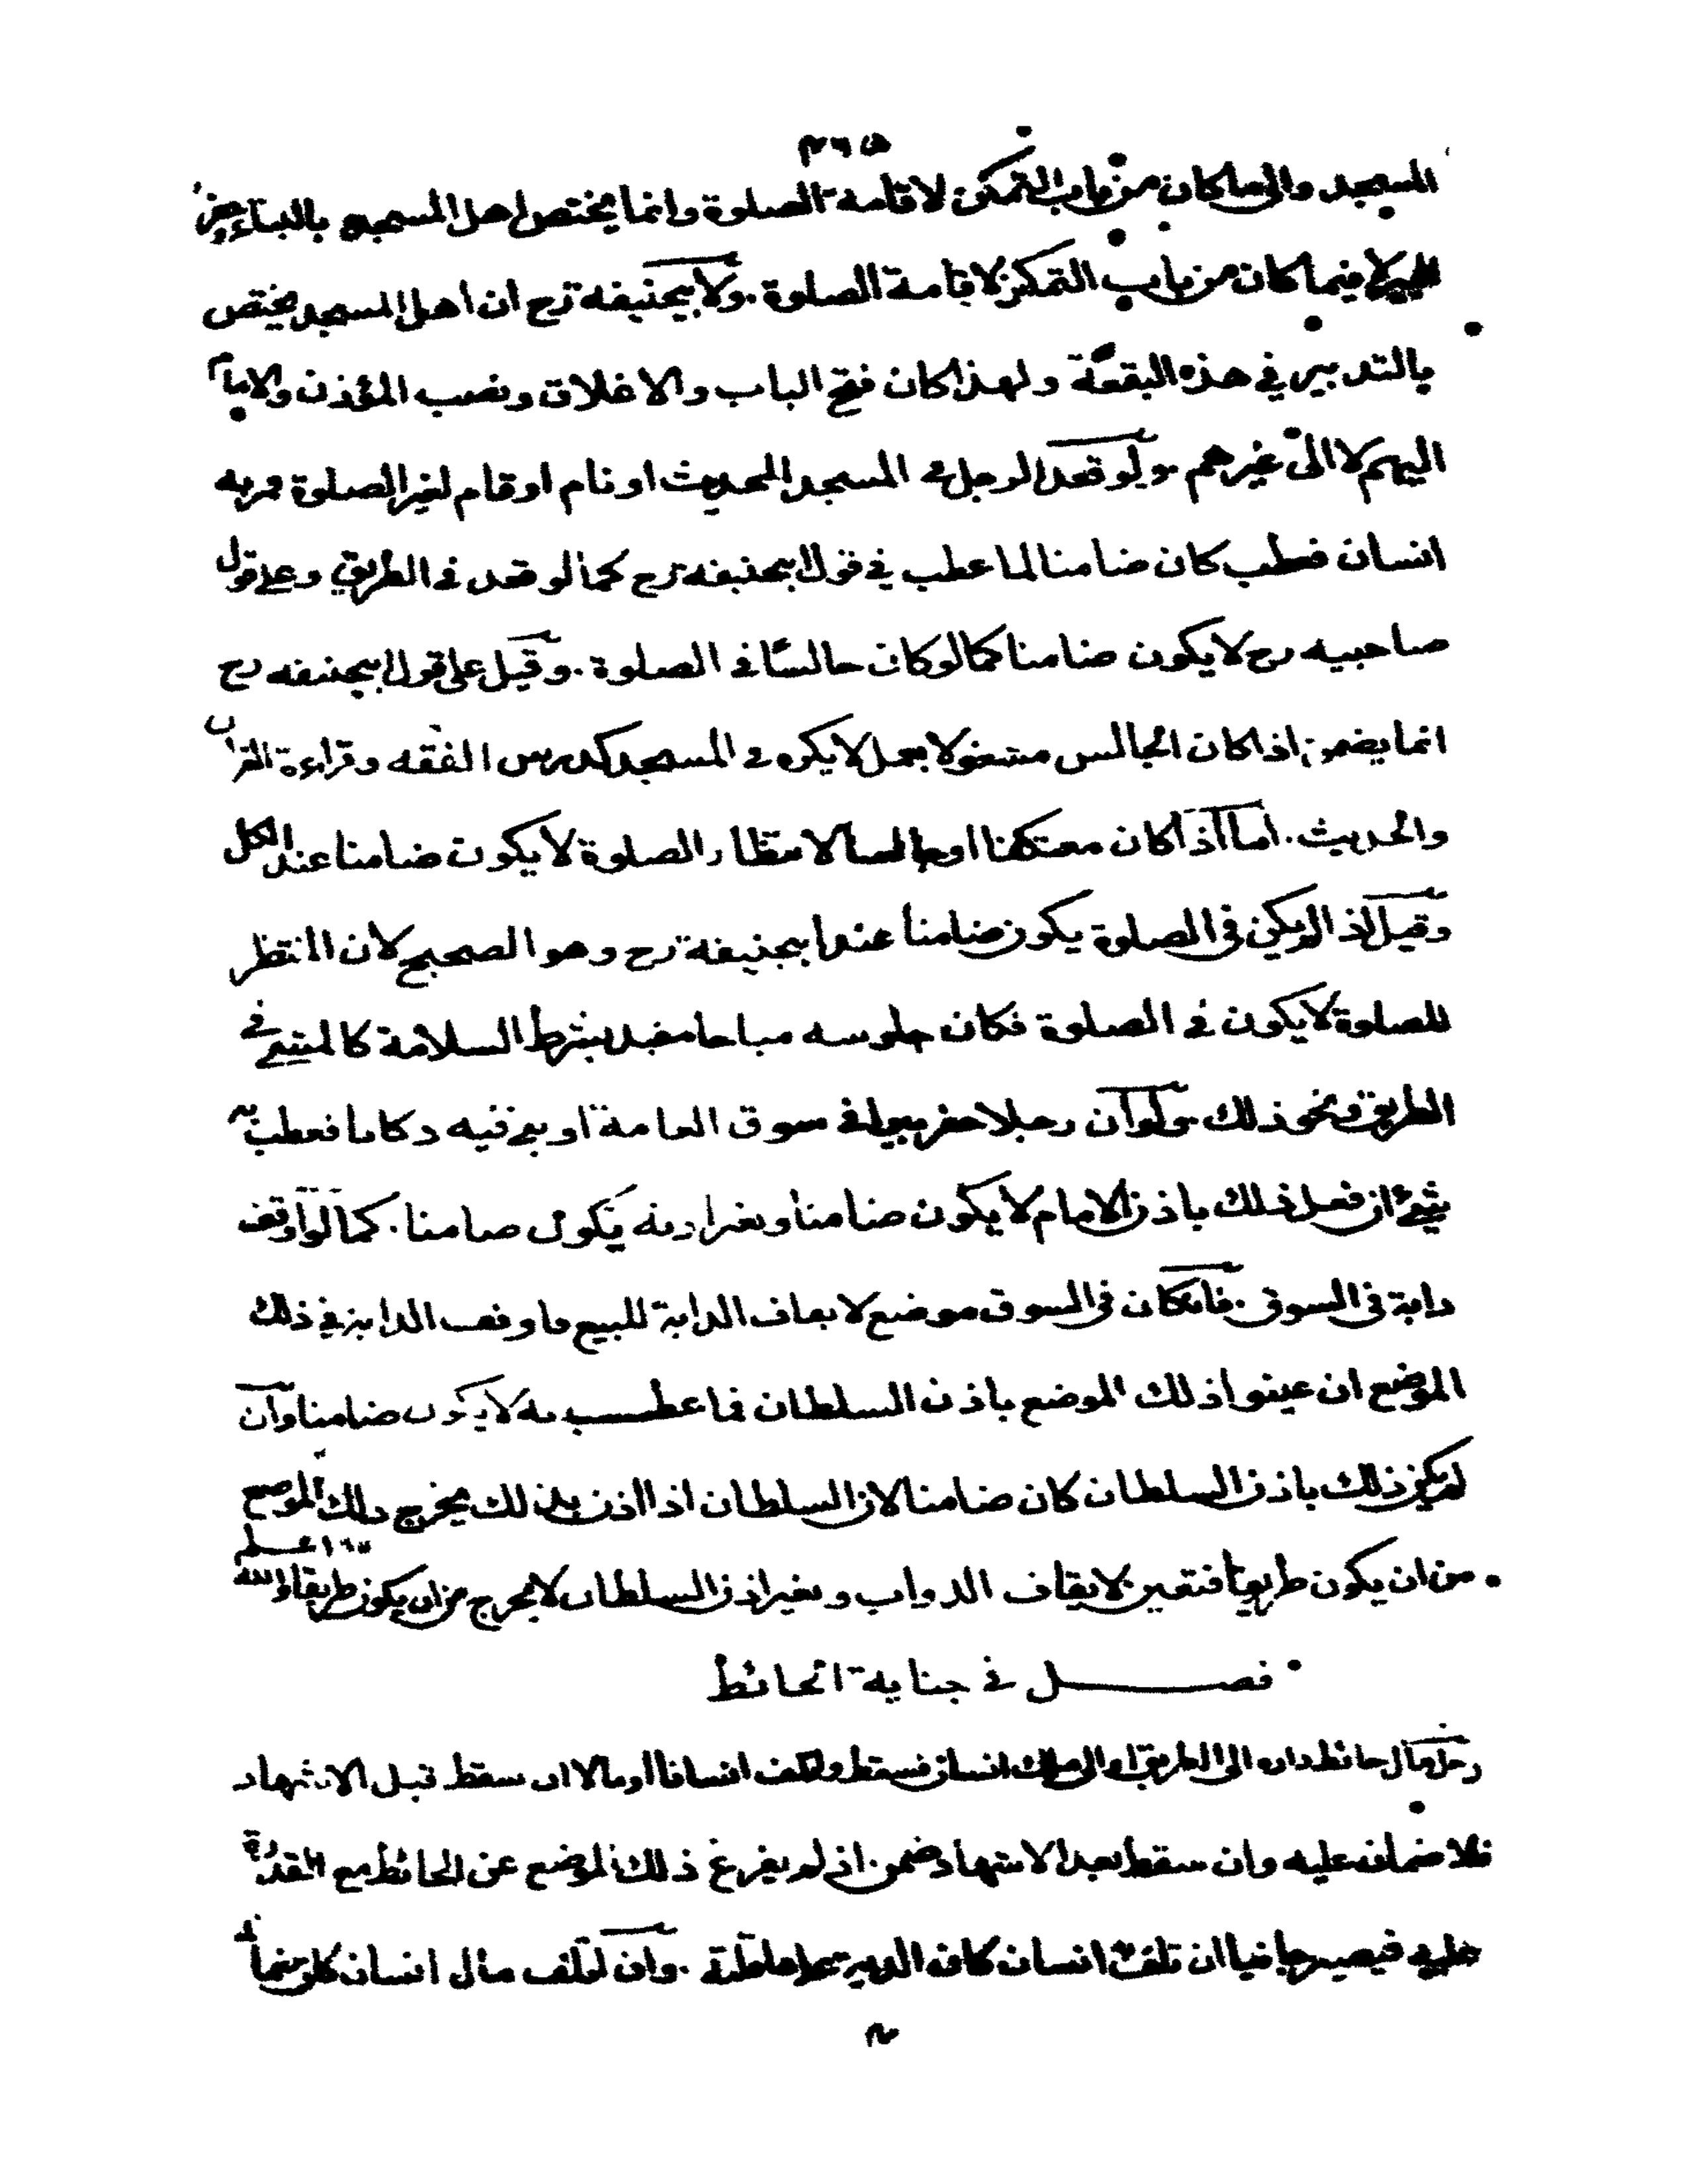 ٣٦٥
المسجد والى ما كان من باب التمكن لاقامة الصلوة وانما يختص اهل المسجد بالبناء
لا فيما كان من باب التمكن لاقامة الصلوة . ولابيحنيفه رح ان اهل المسجد يختص
بالتدبير في هذه البقعة ولهذا كان فتح الباب والاغلاق ونصب المؤذن والامام
اليهم لا الى غيرهم . ولو قعد الرجل في المسجد للحديث او نام او قام لغير الصلوة فمر به
انسان فعطب كان ضامنا لما عطب في قول ابيحنيفه رح كما لو قعد فى الطريق وعلى قول
صاحبيه رح لا يكون ضامنا كما لو كان جالسًا فى الصلوة . وقيل على قول ابيحنيفه رح
انما يضمن اذا كان الجالس مشغولا بعمل لا يكره في المسجد كدرس الفقه وقراءة القران
والحديث . اما اذا كان معتكفا او جالسا لانتظار الصلوة لا يكون ضامنا عند الكل
وقيل اذا لم يكن فى الصلوة يكون ضامنا عند ابيحنيفة رح وهو الصحيح لان المنتظر
للصلوة لا يكون فى الصلوة فكان جلوسه مباحا مقيدا بشرط السلامة كالمشي في
الطريق ونحو ذلك . ولو ان رجلا حفر بيرا فى سوق العامة او بنى فيه دكانا فعطب به
شيئ ان فعل ذلك باذن الامام لا يكون ضامنا وبغير اذنه يكون ضامنا . كما لو اوقف
دابة فى السوق . فان كان فى السوق موضع لايقاف الدابة للبيع فاوقف الدابة في ذلك
الموضع ان عينوا ذلك الموضع باذن السلطان فما عطب به لا يكون ضامنا وان
لم يكن ذلك باذن السلطان كان ضامنا لان السلطان اذا اذن بذلك يخرج ذلك الموضع
من ان يكون طريقا فتعين لايقاف الدواب وبغير اذن السلطان لا يخرج من ان يكون طريقا والله اعلم
فصل في جناية الحائط
رجل مال حائط داره الى الطريق او الى ملك انسان فسقط واتلف انسانا او مالا ان سقط قبل الاشهاد
فلا ضمان عليه وان سقط بعد الاشهاد ضمن اذا لم يفرغ ذلك الموضع عن الحائط مع القدرة
عليه فيصير جانيا ان تلف به انسان كان الدية على عاقلته . وان اتلف مال انسان كان ضمانه